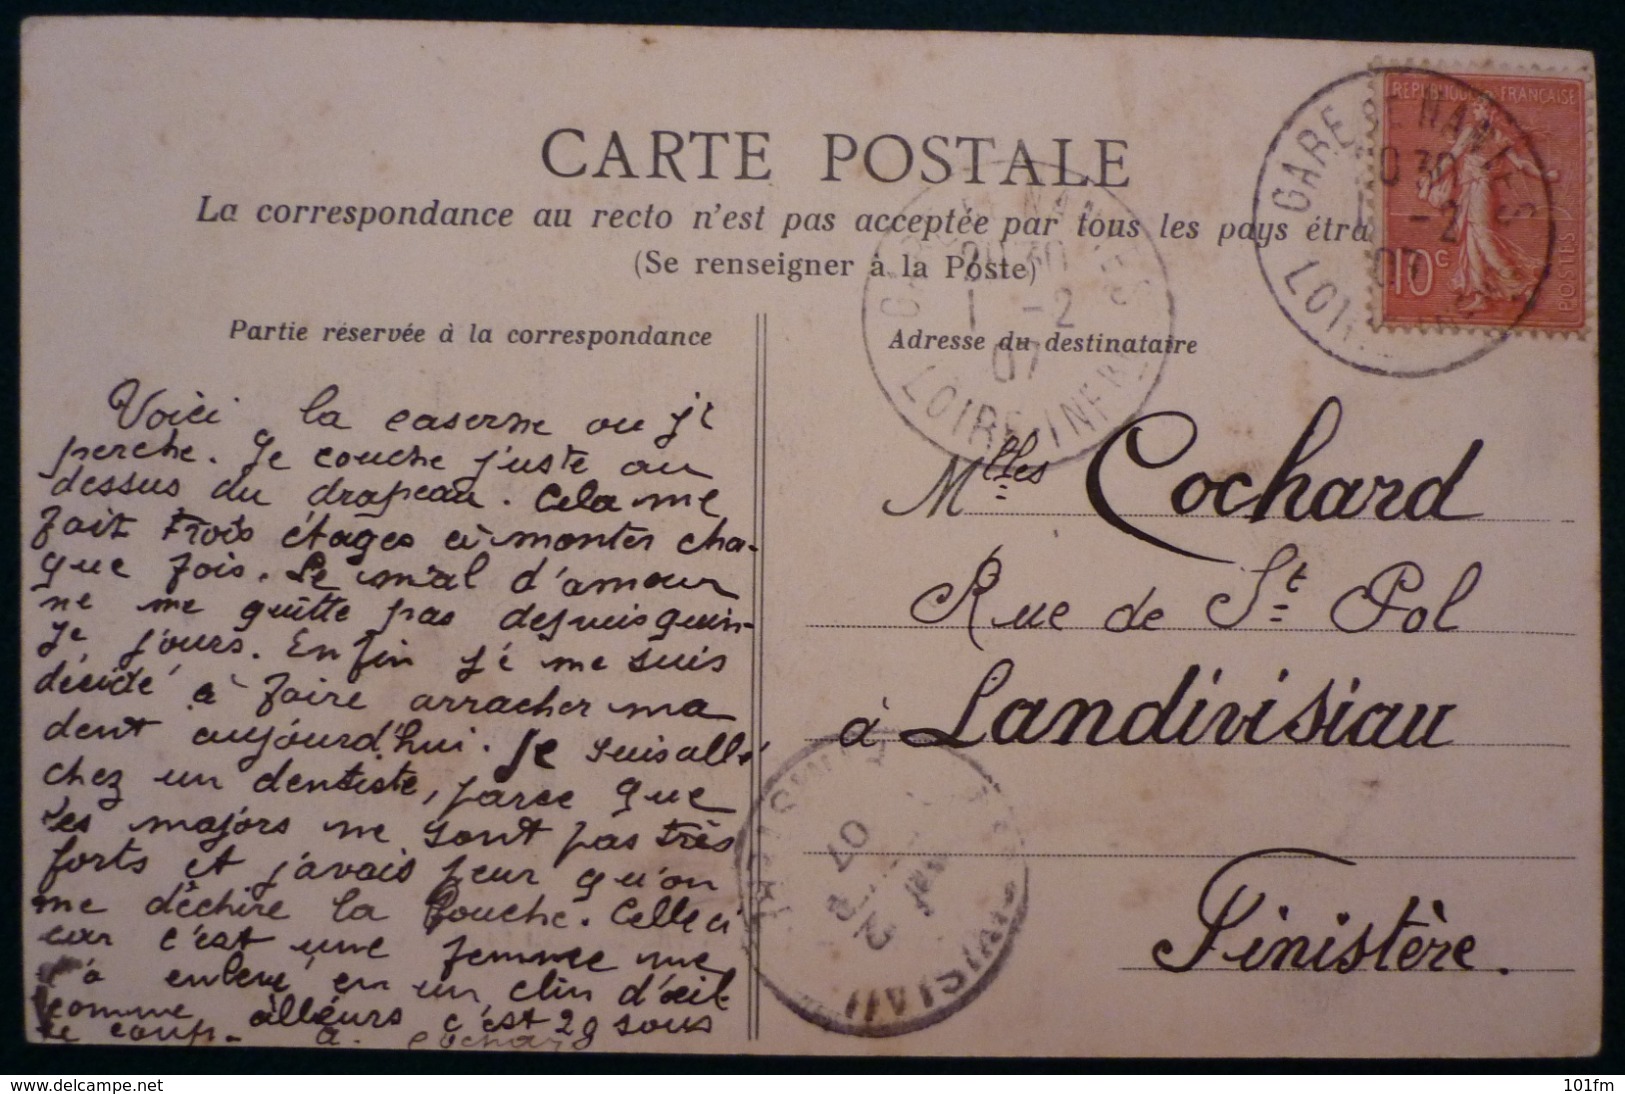 CARTE POSTALE
La correspondance au recto n'est pas acceptée par tous les pays étra
(Se renseigner à la Poste)
Partie réservée à la correspondance
Voici la caserne ou je
perche. Je couche juste au
dessus du drapeau. Cela me
fait trois étages à monter cha-
que fois. Le mal d'amour
ne me quitte pas depuis quin-
ze jours. Enfin je me suis
décidé à faire arracher ma
dent aujourd'hui. Je suis allé
chez un dentiste, parce que
les majors ne sont pas très
forts et j'avais peur qu'on
me déchire la bouche. Celle ci
car c'est une femme me
l'a enlevé en un clin d'œil
comme ailleurs c'est 2 sous
le coup. A. Cochard
Adresse du destinataire
Mlles Cochard
Rue de St Pol
à Landivisiau
Finistère.
REPUBLIQUE FRANÇAISE
10c
POSTES
GARE DE NANTES
20 30
1 -2
07
LOIRE INFRE
GARE DE NANTES
30
-2
07
LOI
07
2
ISIAU
https://www.delcampe.net
101fm